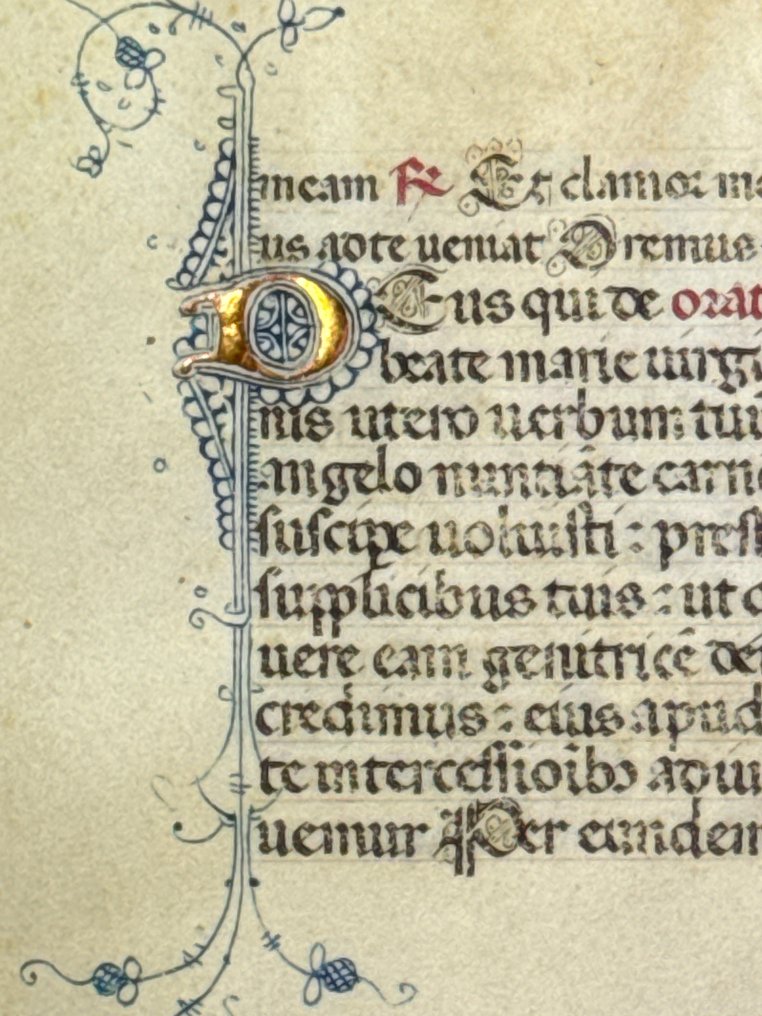 meam R Et clamor me
us ad te ueniat Oremus
Deus qui de orat
beate marie uirgi
nis utero uerbum tuū
angelo nuntiāte carne
suscipe uoluisti : prest
supplicibus tuis : ut q
uere eam genitricē dei
credimus : eius apud
te intercessioībꝫ adiu
uemur Per eundem